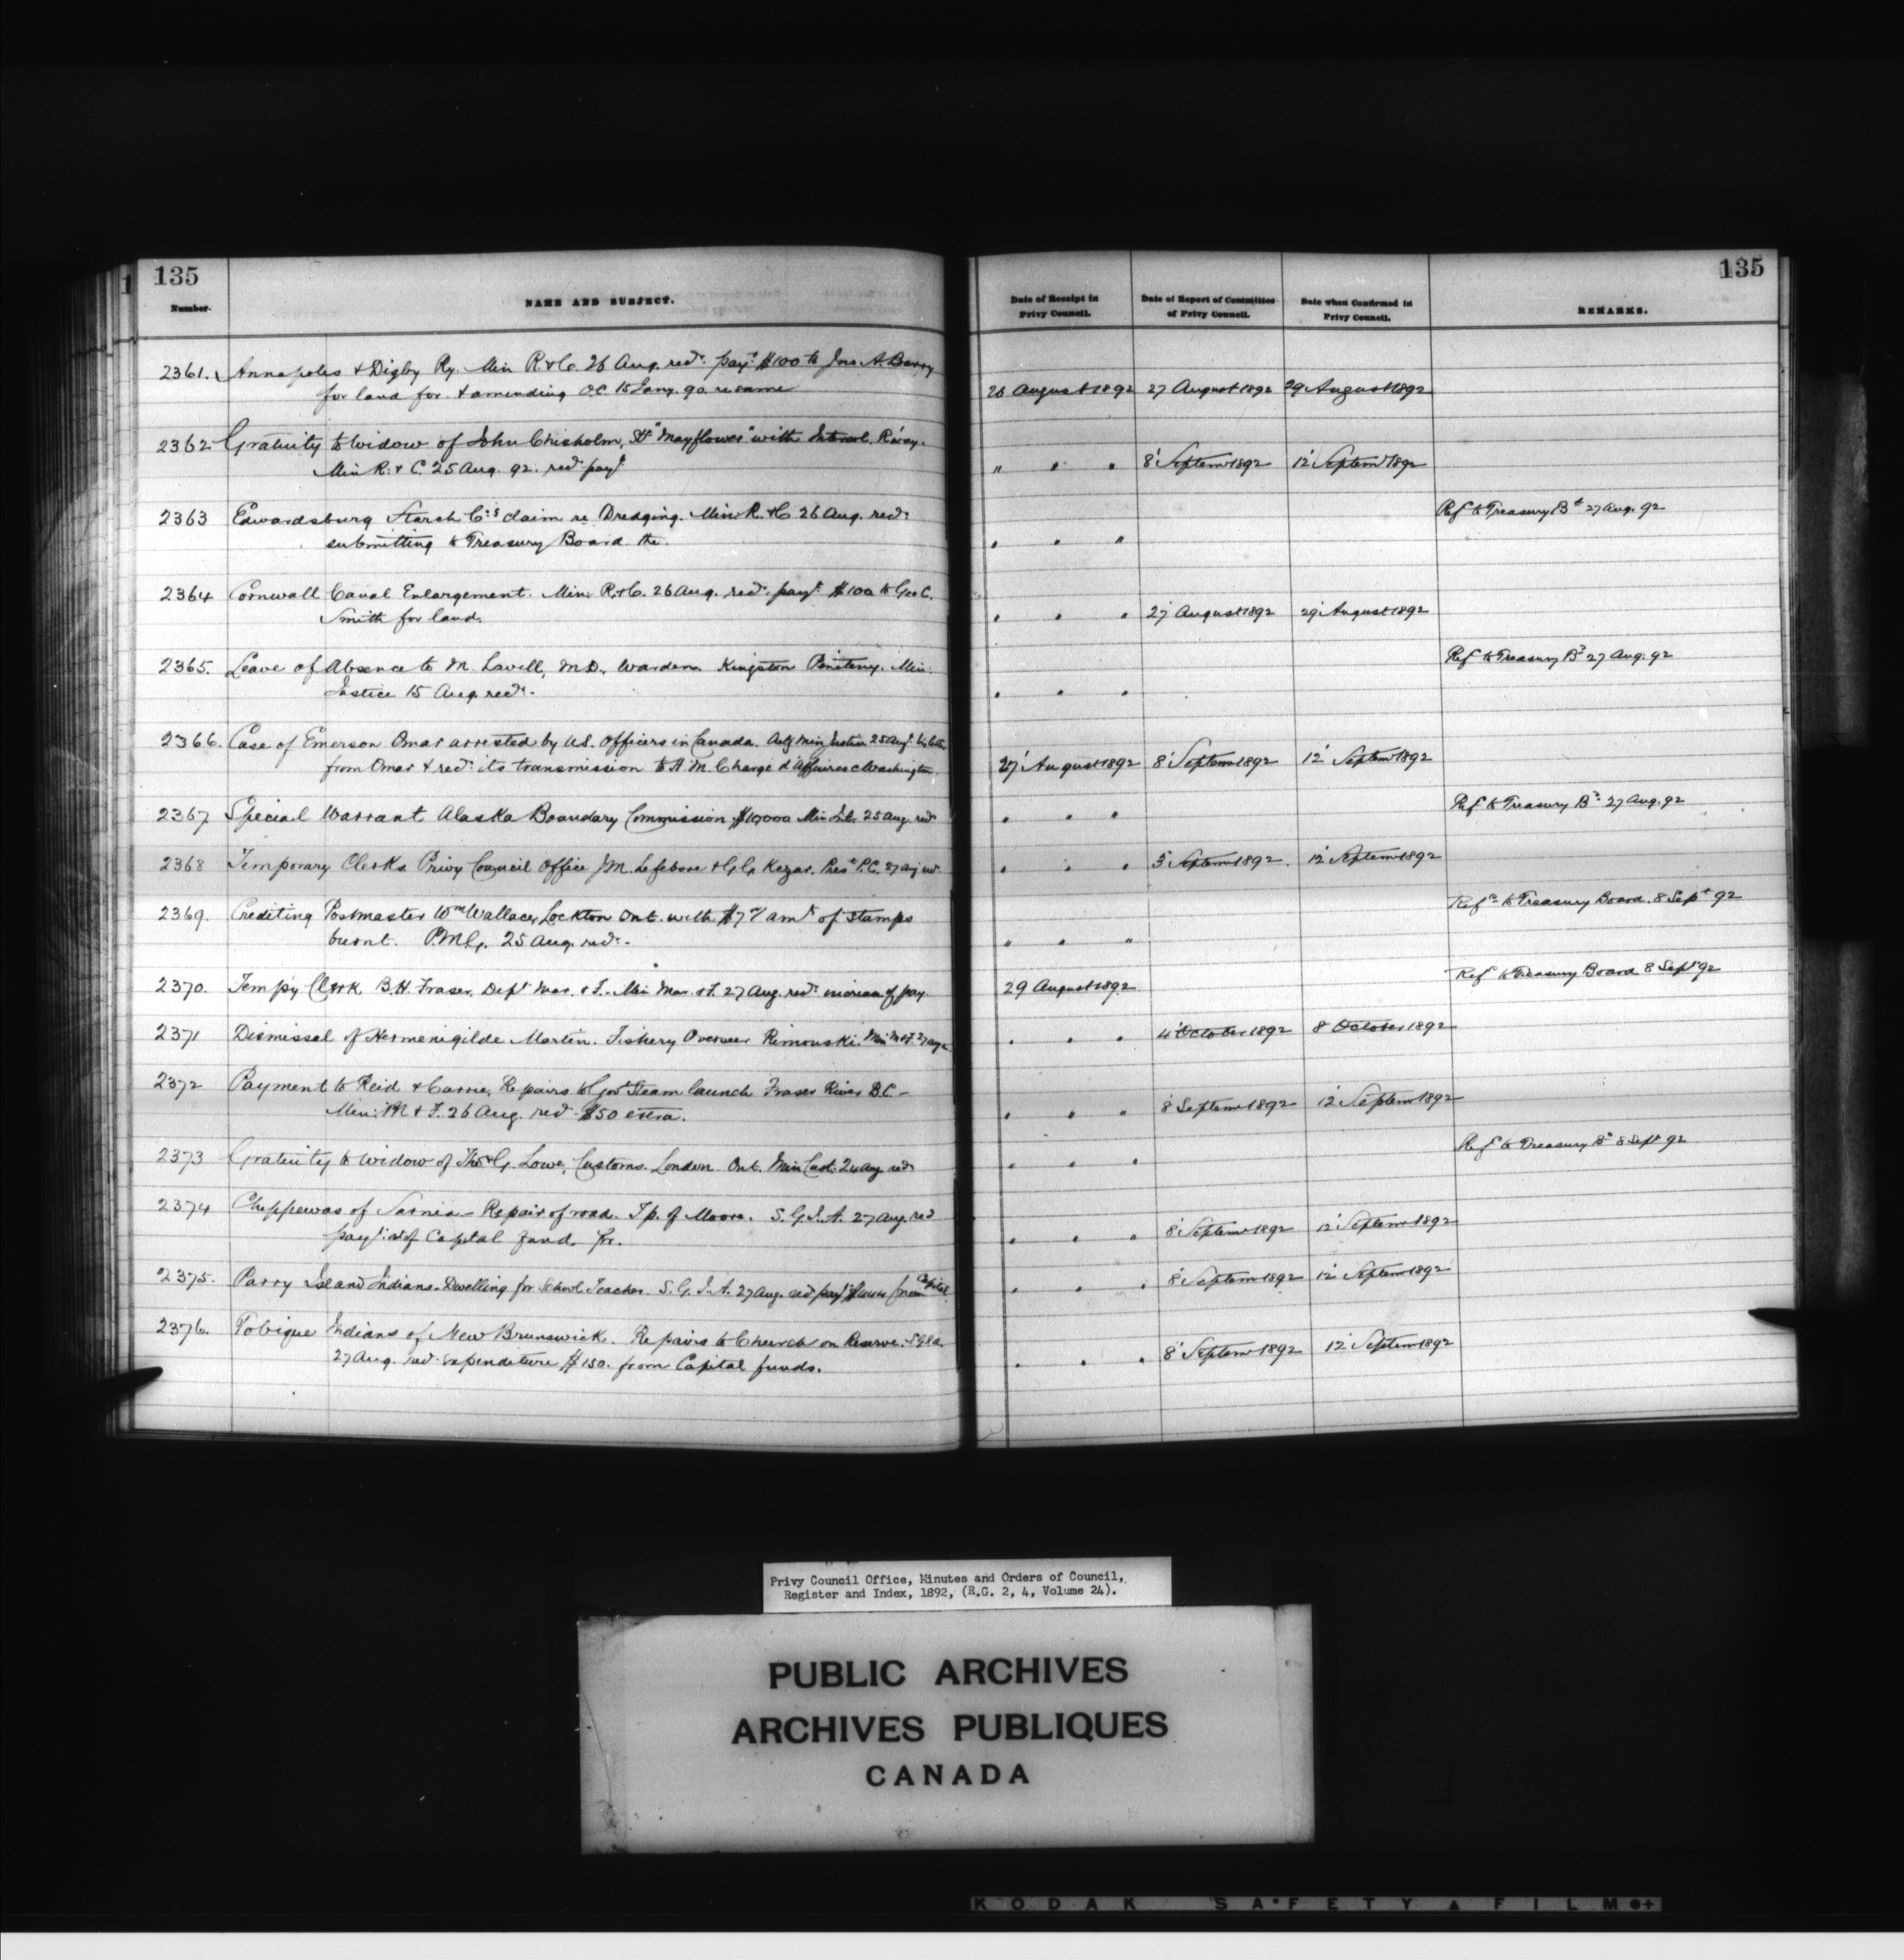 135
135
Number.
NAME AND SUBJECT.
Date of Receipt in Privy Council.
Date of Report of Committee of Privy Council.
Date when Confirmed in Privy Council.
REMARKS.
2361. Annapolis & Digby Ry. Min R. & C. 26 Aug. recd. payt. $100 to Jno A. Barry
for land for. & amending O.C. 15 Jany. 90 re same
26 August 1892 27 August 1892 29 August 1892
2362 Gratuity to widow of John Chisholm, Str "Mayflower" with Intercol. R'way.
Min R. & C. 25 Aug. 92. recd. payt
" " " 8' Septem 1892 12' Septem 1892
2363 Edwardsburg Starch Co's claim re Dredging. Min. R. & C 26 Aug. recd.
submitting to Treasury Board the.
" " "
Ref to Treasury Bd 27 Aug. 92
2364 Cornwall Canal Enlargement. Min. R. & C. 26 Aug. recd. payt. $100 to Geo C.
Smith for land.
" " " 27' August 1892 29' August 1892
2365. Leave of Absence to M. Lavell, M.D., Warden Kingston Peniteny. Min.
Justice 15 Aug. recd.
" " "
Ref to Treasury Bd 27 Aug. 92
2366. Case of Emerson Omar arrested by U.S. Officers in Canada. Actg Min Justice 25 Aug.
from Omar & recd. its transmission to H.M. Chargé d'Affaires Washington.
27' August 1892 8' Septem 1892 12' Septem 1892
2367 Special Warrant Alaska Boundary Commission $10,000 Min Int. 25 Aug. recd
" " "
Ref to Treasury Bd 27 Aug. 92
2368 Temporary Clerks Privy Council Office J.M. Lefebvre & G.G. Kezar. Prest P.C. 27 Aug recd.
" " " 3' Septem 1892. 12' Septem 1892
2369. Crediting Postmaster Wm Wallace, Lockton Ont. with amt of Stamps
burnt. P.M.G. 25 Aug. recd.
" " "
Ref to Treasury Board. 8 Sept 92
2370. Temp'y Clerk B.H. Fraser. Dept Mar. & F. Min Mar. & F. 27 Aug. recd. increase of pay.
29 August 1892
Ref to Treasury Board 8 Sept 92
2371 Dismissal of Hermenigilde Martin. Fishery Overseer Rimouski. Min M & F. 27 Aug
" " " 4' October 1892 8 October 1892
2372 Payment to Reid & Currie, Repairs to Govt Steam launch Fraser River B.C.-
Min. M & F. 26 Aug. recd. $50 extra.
" " " 8' Septem 1892 12' Septem 1892
2373 Gratuity to widow of Thos G. Lowe, Customs. London. Ont. Min Cust. 24 Aug recd
" " "
Ref to Treasury Bd 8 Sept 92
2374 Chippewas of Sarnia - Repair of road. Tp. of Moore. S.G.I.A. 27 Aug. recd
payt. out of Capital Fund for.
" " " 8' Septem 1892 12' Septem 1892
2375. Parry Island Indians - Dwelling for School Teacher. S.G.I.A. 27 Aug. recd payt from Capital
" " " 8' Septem 1892 12' Septem 1892
2376. Tobique Indians of New Brunswick. Repairs to Church on Reserve. SGIA.
27 Aug. recd. expenditure $150. from Capital funds.
" " " 8' Septem 1892 12' Septem 1892
Privy Council Office, Minutes and Orders of Council,
Register and Index, 1892, (R.G. 2, 4, Volume 24).
PUBLIC ARCHIVES
ARCHIVES PUBLIQUES
CANADA
KODAK SAFETY FILM